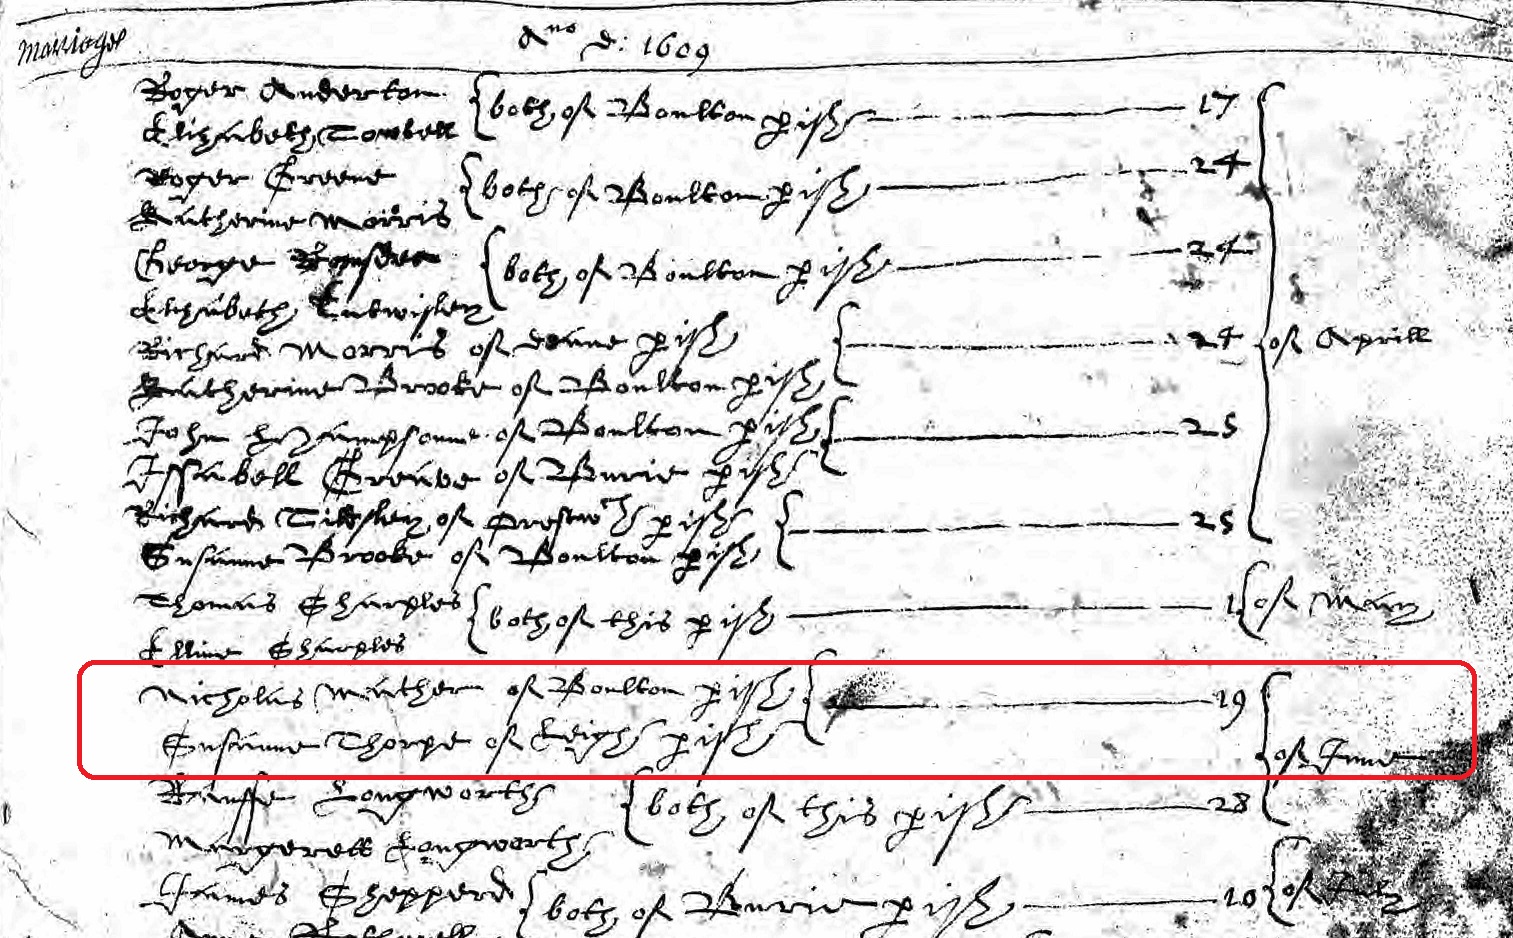 Marriages
Ano d: 1609
Roger Anderton
Elizabeth
both of Boulton pish 17
Roger Greene
Katherine Morris
both of Boulton pish 24
George
Elizabeth Entwisley
both of Boulton pish 24
Richard Morris of deane pish
Katherine Brooke of Boulton pish
24 of Aprill
John of Boulton pish
Issabell Greave of Burie pish
25
Richard Tildsley of pish
Susanne Brooke of Boulton pish
25
Thomas Sharples
Elline Sharples
both of this pish 1 of May
Nicholas Mather of Boulton pish
Susanne Thorpe of Leigh pish
19
of June
Rauffe Longworth
Margerett Longworth
both of this pish 28
James Shepperd
both of Burie pish 10 of July